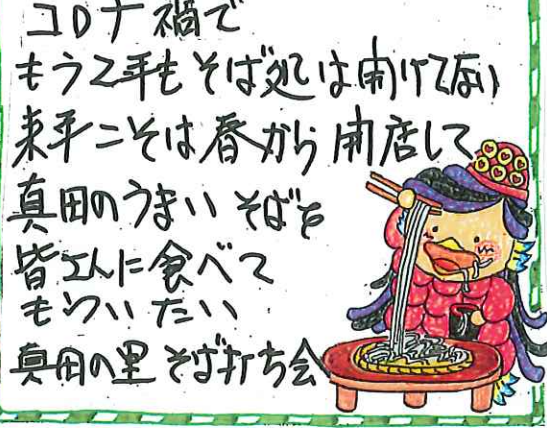 コロナ禍で
もう2年もそば処は開けてない
来年こそは春から開店して
真田のうまいそばを
皆さんに食べて
もらいたい
真田の里そば打ち会